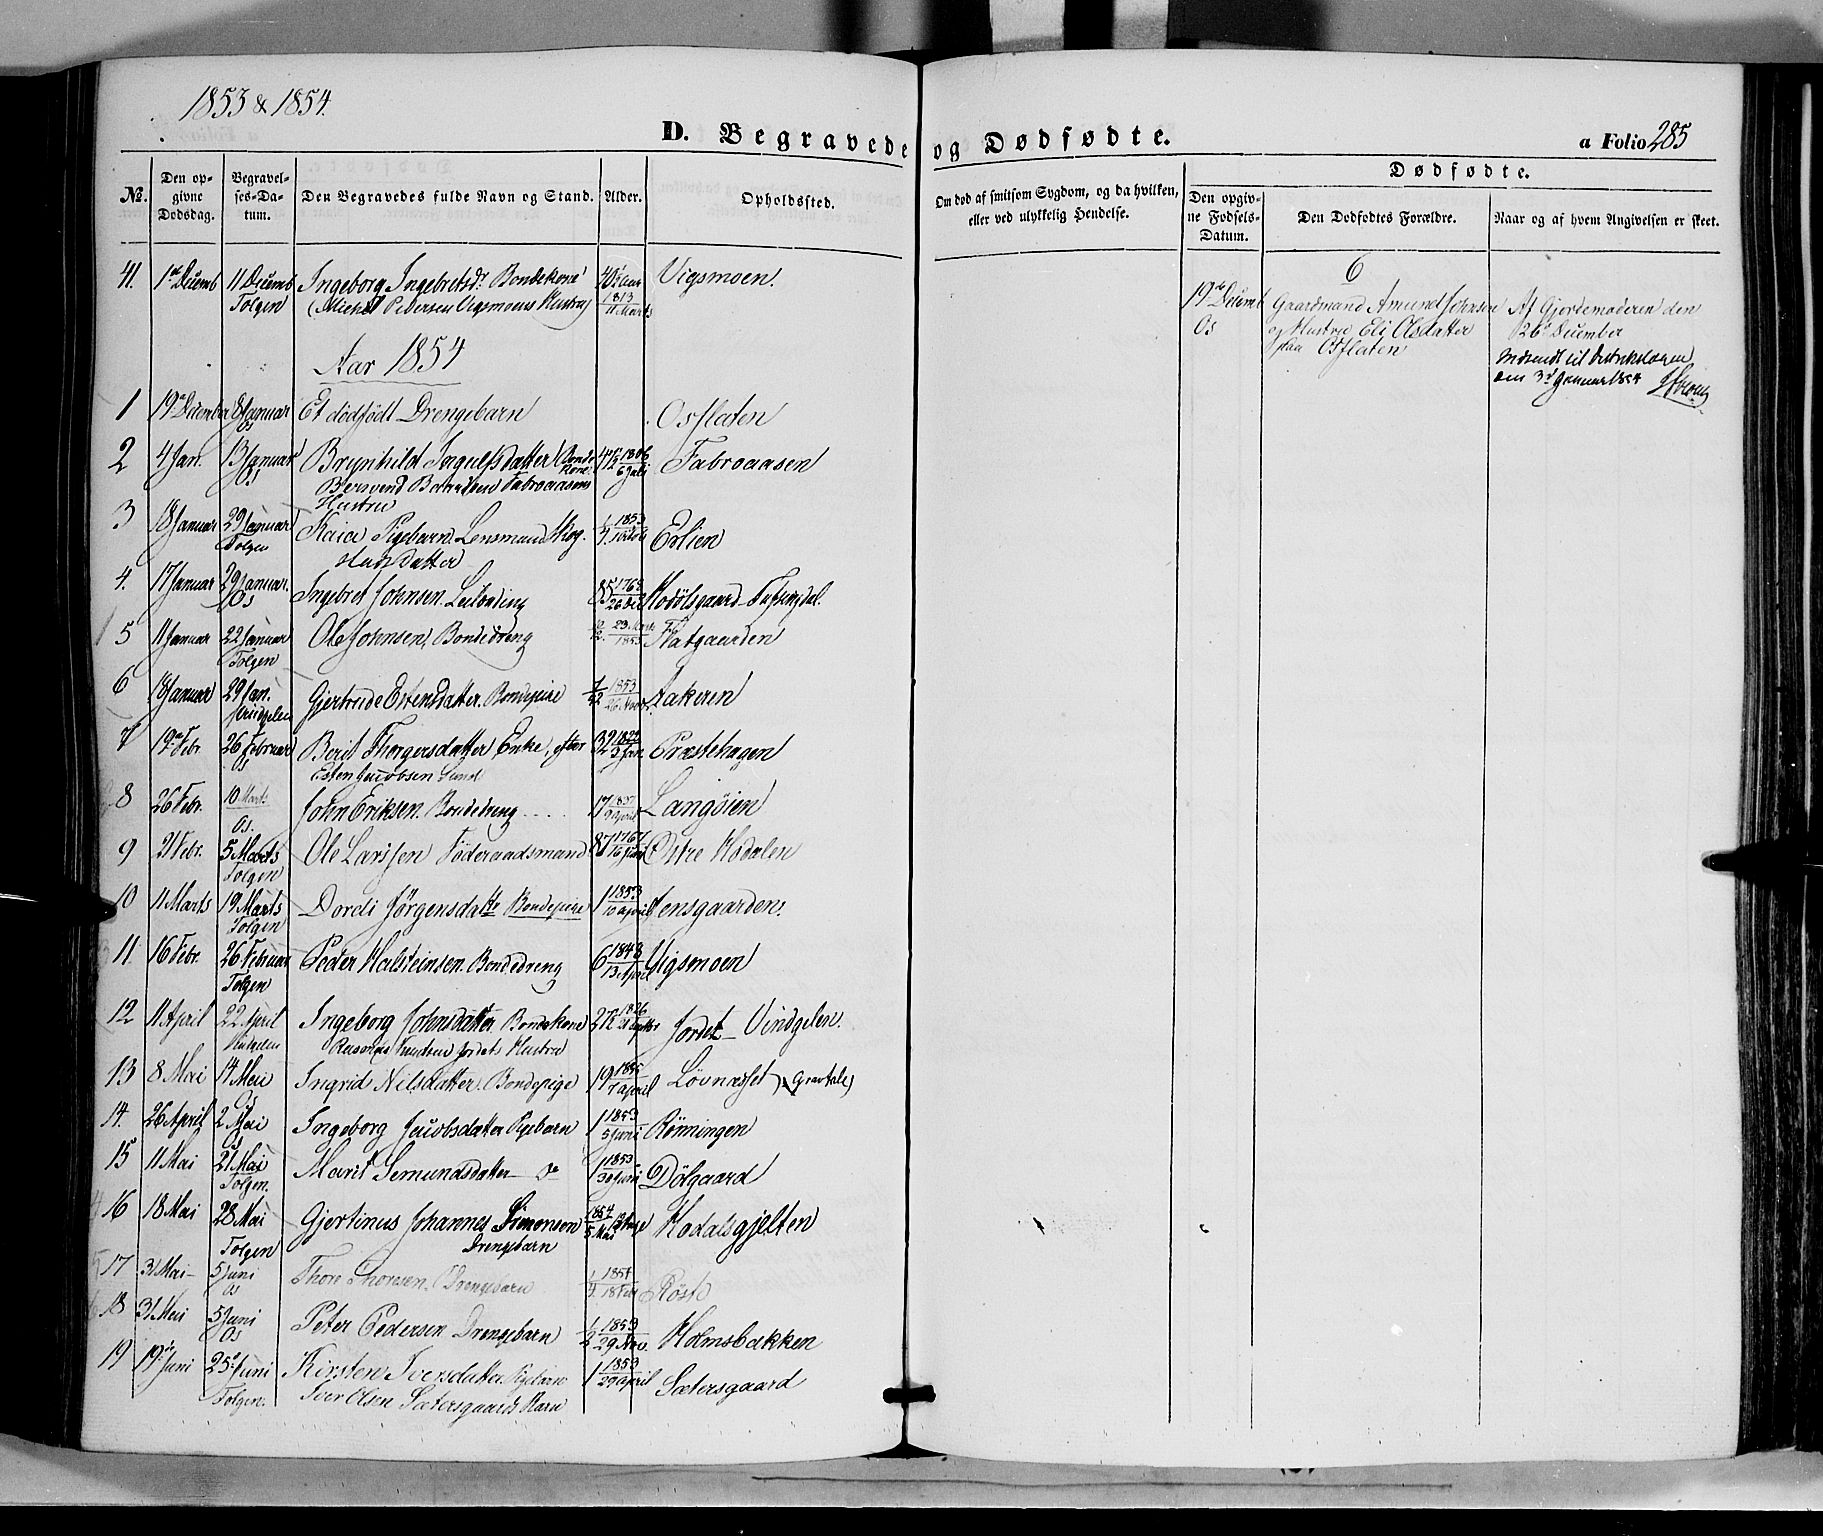 1853 & 1854.
D. Begravede og Dødfødte.
a Folio 285
Dødfødte.
No. Den opgivne Dødsdag. Begravelses-Datum. Den Begravedes fulde Navn og Stand. Alder. Opholdssted. Om død af smitsom Sygdom, og da hvilken, eller ved ulykkelig Hendelse. Den opgivne Fødsels-Datum. Den Dødfødtes Forældre. Naar og af hvem Angivelsen er skeet.
41. 1ste Decemb 11 Decemb Ingeborg Ingebretsdr Bondekone Vigsmoen.
Tolgen (Michel Pedersen Vigsmoens Hustru) 1813 11 Marts
6
19de Decemb Gaardmand Amund Johnsen Af Gjordemoderen den
Os og Hustru Eli Olsdatter 26 December
paa Osflaten Indsendt til
den 3d Januar 1854
Aar 1854
1 19 December 8 Januar Et dødfødt Drengebarn Osflaten
Os
2 4 Jan. 13 Januar Brynhild Ingulfsdatter (Bonde Kone 47 1806 6 Juli Fabroaasen
Os Fabroaasens
Hustru
3 18 Januar 29 Januar Kaia Pigebarn. Lensmand Skog- 1853 Erlien
Tolgen stads Datter
4. 17 Januar 29 Januar. Ingebret Johnsen. 85 26 Dec Hodølsgaard Tufsingdal.
Os
5 11 Januar 22 Januar Ole Johnsen, Bondedreng 23 1853 Flatgaarden
Tolgen
6 18 Januar 29 Jan. Gjertrude Estensdatter. Bondepige 1853 26 Nov. Aakeren
Vindgelen
7 19de Febr 26 Februar Berit Thorgersdatter Enke, efter 32 3 Jan Præstehagen
Os Esten Jacobsen Sund
8 26 Febr. 10 Marts John Eriksen. Bondedreng 17 9 April Langøien
Os.
9 21 Febr. 5 Marts Ole Larssen Føderaadsmand 87 1767 Østre Hodalen
Tolgen
10 11 Marts 19 Marts Dordi Jørgensdatter Bondepige 1 1853 10 April Jensgaarden.
Tolgen
11. 16 Febr. 26 Februar Peder Halsteinsen. Bondedreng 6 1848 13 April Vigsmoen
Tolgen
12 11 April 22 April Ingeborg Johnsdatter. Bondekone 27 1826 Jordet Vindgelen.
Vindgelen Jordets Hustru
13 8 Mai 14 Mai Ingrid Nilsdatter. Bondepige 19 7 April Løvnæsset
Os
14. 26 April 2 Mai Ingeborg Jacobsdatter Pigebarn 1 1853 5 Juni Rønningen
Os
15 11 Mai 21 Mai Marit Semundsdatter do 1 1853 30 Juni Dølgaard
Tolgen.
16 18 Mai 28 Mai Gjertinus Johannes Simensen 1854 5 Mai Hodalsgjelten
Tolgen Drengebarn
17 31 Mai 5 Juni Thore Thoresen. Drengebarn 1854 18 Febr Røste
Os
18 31 Mai 5 Juni Peter Pedersen Drengebarn 1/2 1853 29 Nov. Holmsbakken
Os
19 19de Juni 25 Juni Kirsten Iversdatter Pigebarn 1 1853 29 April Sætersgaard
Tolgen. Iver Olsen Sætersgaards Barn